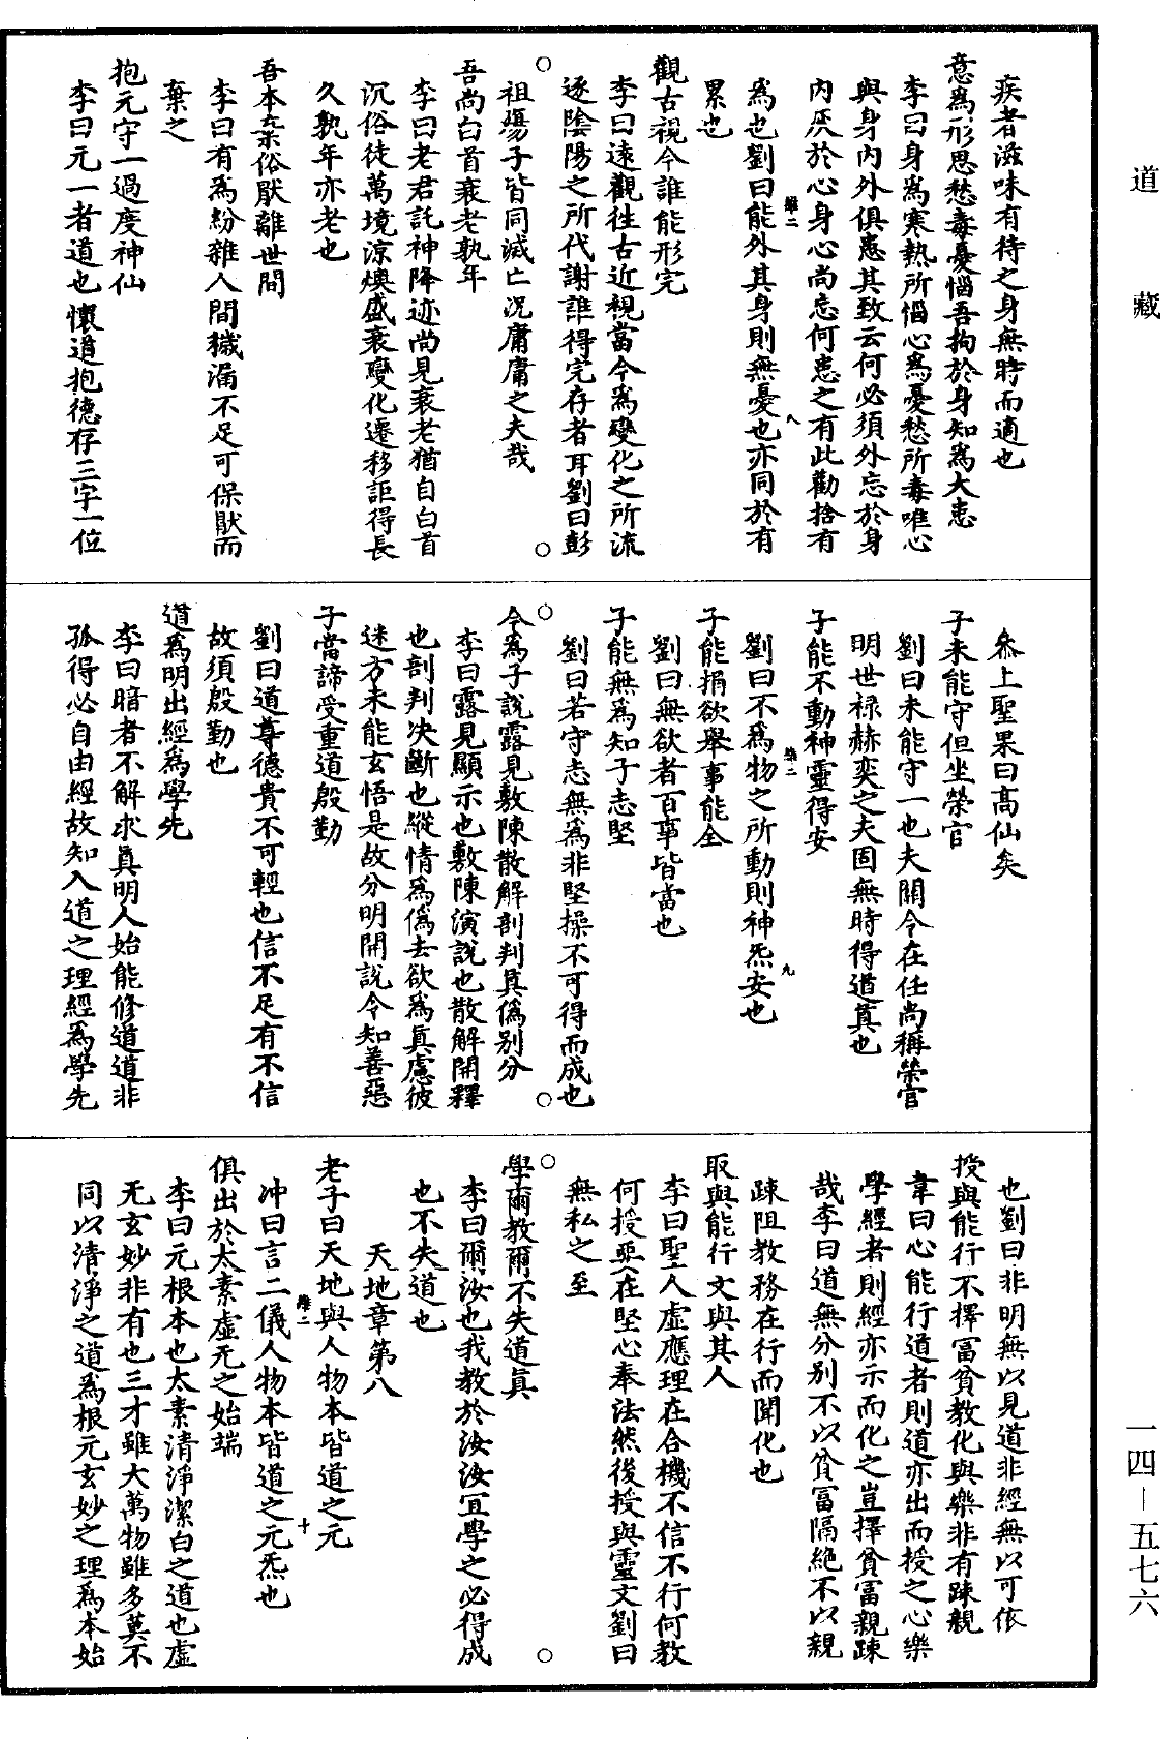 道藏
疾者滋味有待之身無時而適也
意爲形思愁毒憂惱吾拘於身知爲大患
李曰身爲寒熱所惱心爲憂愁所毒唯心
與身內外俱患其致云何必須外忘於身
內灰於心身心尚忘何患之有此勸捨有
爲也劉曰能外其身則無憂也亦同於有
累也
觀古視今誰能形完
李曰遠觀徃古近視當今爲變化之所流
逐陰陽之所代謝誰得完存者耳劉曰彭
祖殤子皆同滅亡況庸庸之夫哉
吾尚白首衰老孰年
李曰老君託神降迹尚見衰老猶自白首
沉俗徒萬境涼燠盛衰變化遷移詎得長
久孰年亦老也
吾本棄俗猒離世間
李曰有爲紛雜人間穢漏不足可保猒而
棄之
抱元守一過度神仙
李曰元一者道也懷道抱德存三字一位
叅上聖果曰高仙矣
子未能守但坐榮官
劉曰未能守一也夫關令在任尚稱榮官
明世祿赫奕之夫固無時得道眞也
子能不動神靈得安
劉曰不爲物之所動則神炁安也
子能捐欲舉事能全
劉曰無欲者百事皆當也
子能無爲知子志堅
劉曰若守志無爲非堅操不可得而成也
今爲子說露見敷陳散解剖判眞僞別分
李曰露見顯示也敷陳演說也散解開釋
也剖判決斷也縱情爲僞去欲爲眞慮彼
迷方未能玄悟是故分明開說令知善惡
子當諦受重道殷勤
劉曰道尊德貴不可輕也信不足有不信
故須殷勤也
道爲明出經爲學先
李曰暗者不解求眞明人始能修道道非
孤得必自由經故知入道之理經爲學先
也劉曰非明無以見道非經無以可依
授與能行不擇富貧教化與樂非有踈親
韋曰心能行道者則道亦出而授之心樂
學經者則經亦示而化之豈擇貧富親踈
哉李曰道無分別不以貧富隔絶不以親
踈阻教務在行而聞化也
取與能行文與其人
李曰聖人虛應理在合機不信不行何教
何授要在堅心奉法然後授與靈文劉曰
無私之至
學爾教爾不失道眞
李曰爾汝也我教於汝汝宜學之必得成
也不失道也
天地章第八
老子曰天地與人物本皆道之元
冲曰言二儀人物本皆道之元炁也
俱出於太素虛无之始端
李曰元根本也太素清淨潔白之道也虛
无玄妙非有也三才雖大萬物雖多莫不
同以清淨之道爲根元玄妙之理爲本始
一四－五七六